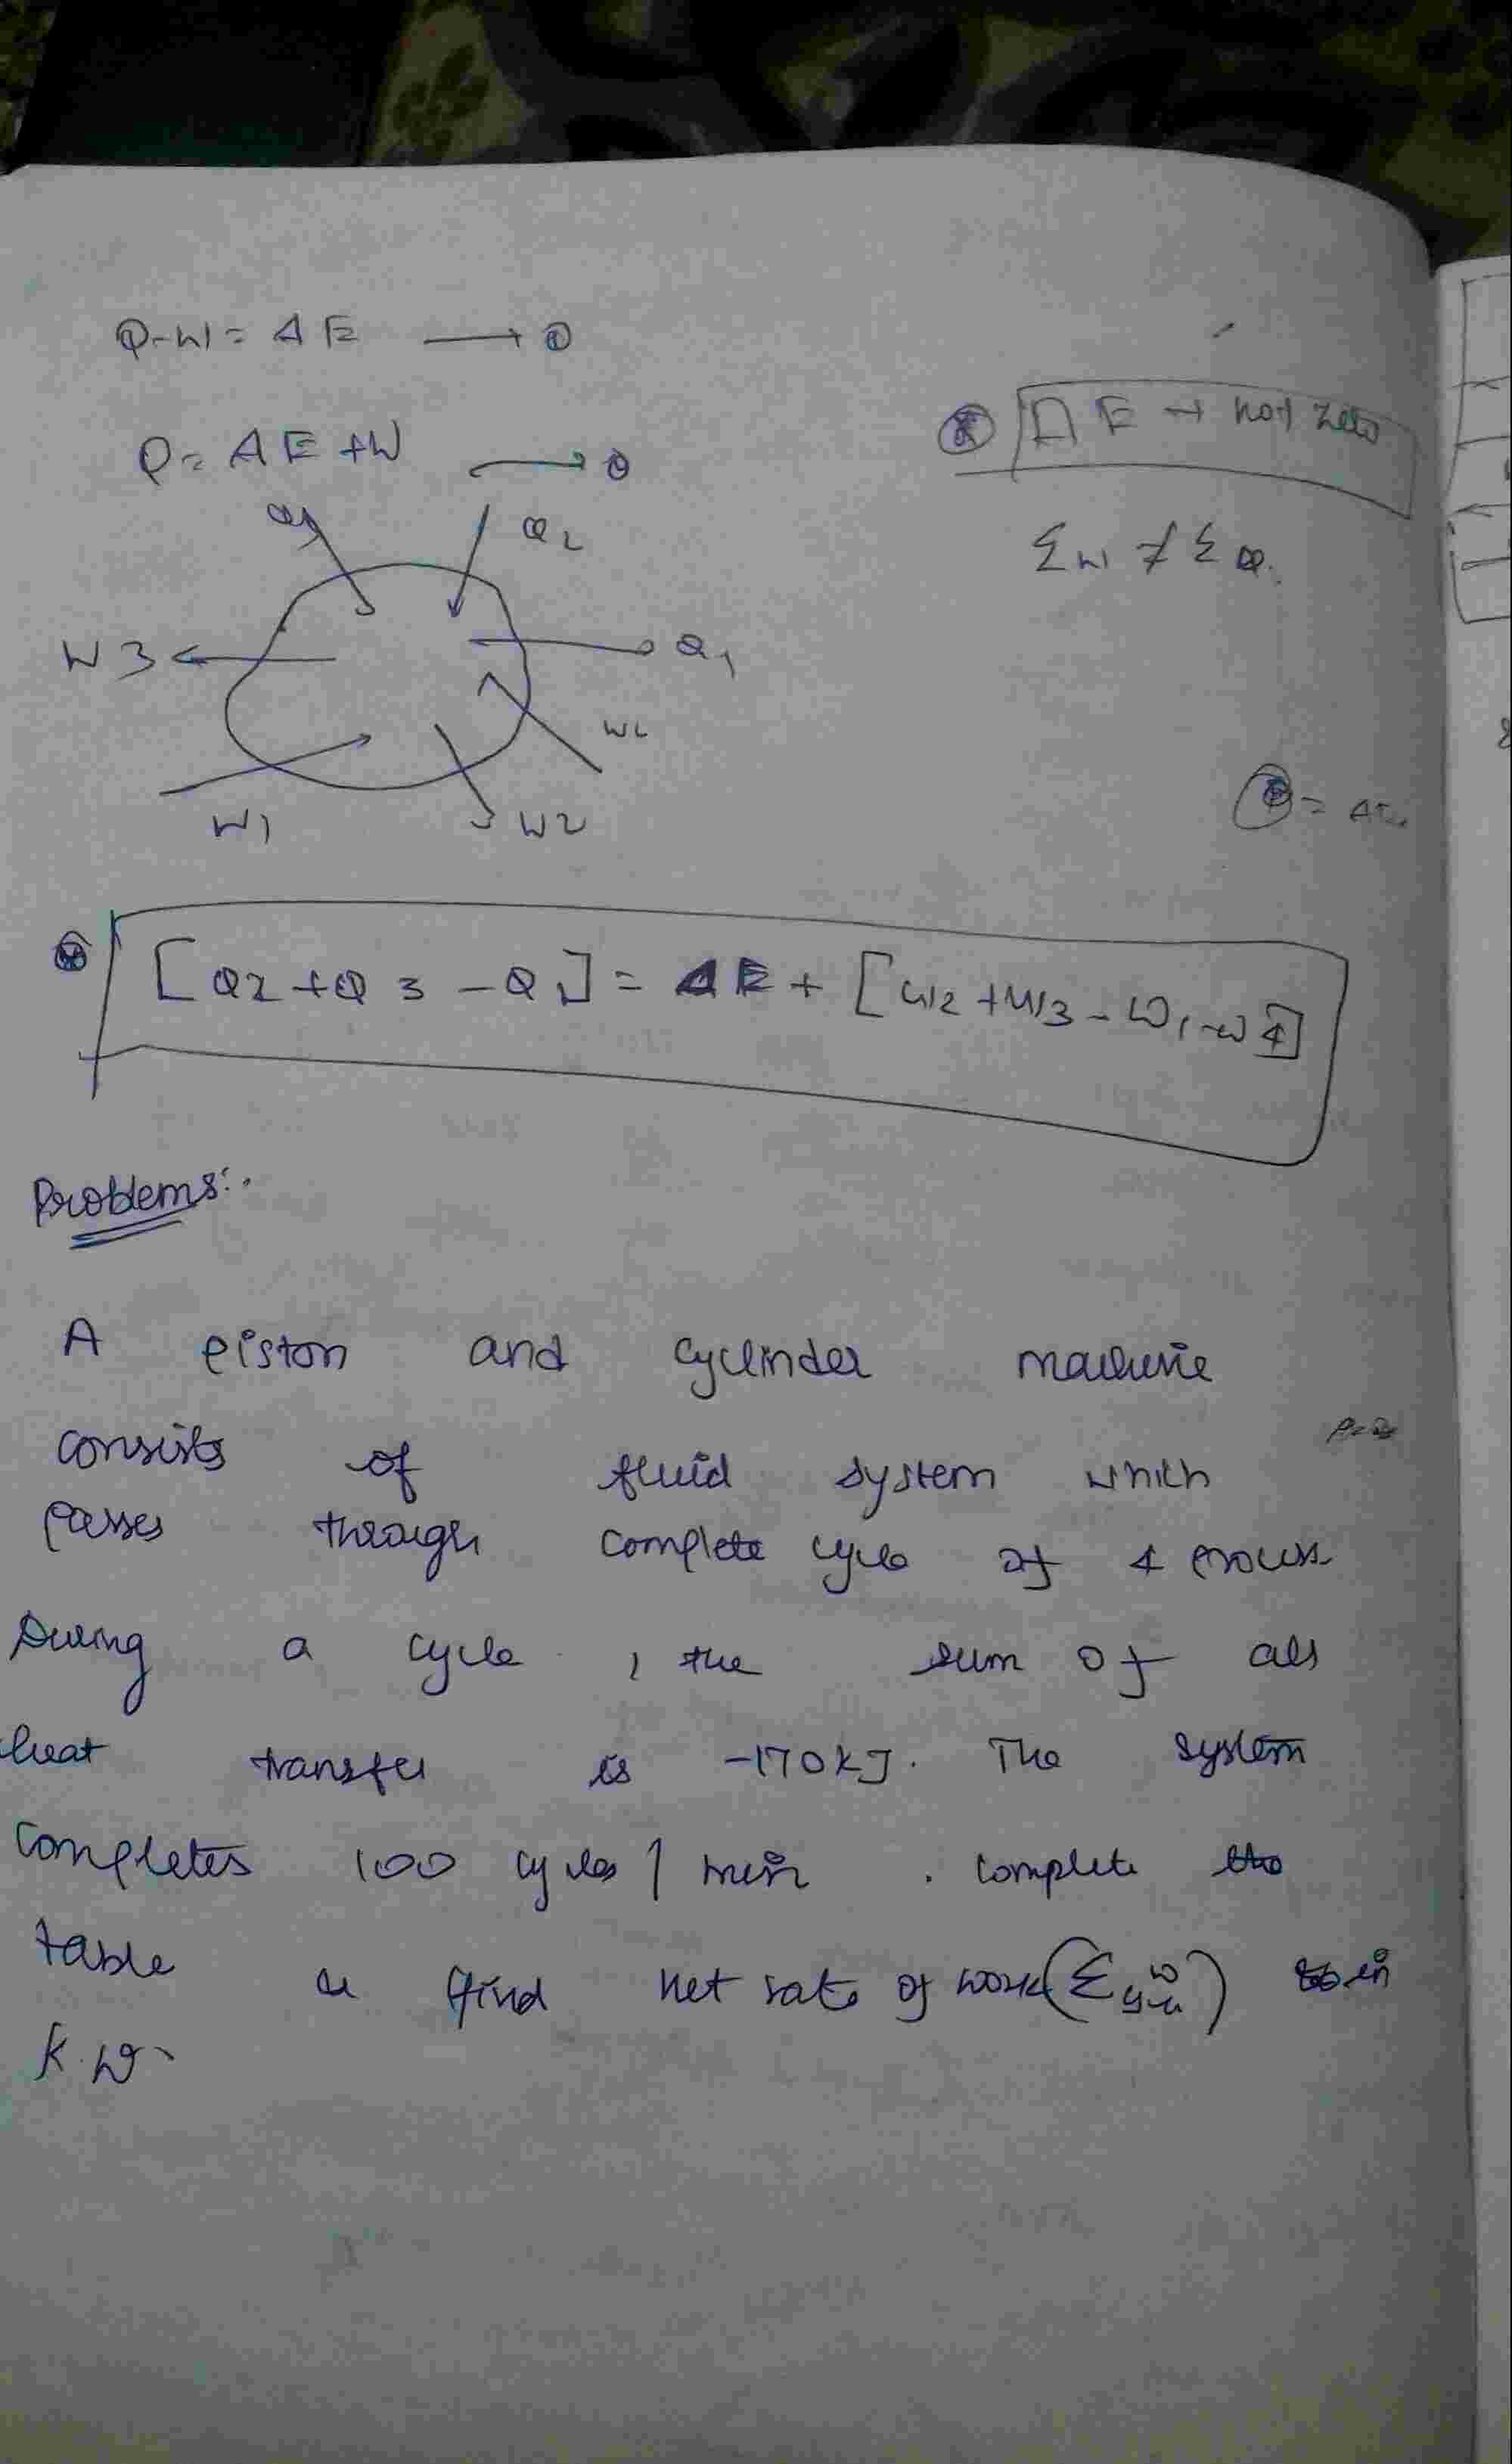 Q-W = ΔE → ①
Q = ΔE + W →
ΔE → not zero
ΣW ≠ ΣQ.
Q3
Q2
W3
Q1
W4
W1
W2
[Q2 + Q3 - Q1] = ΔE + [W2 + W3 - W1 - W4]
Problems:.
A piston and cylinder machine
consists of fluid system which
passes through complete cycle of 4 process
During a cycle, the sum of all
heat transfer is -170kJ. The system
completes 100 cycles / min. complete the
table & find net rate of work (Σ cycle W) in
k.W